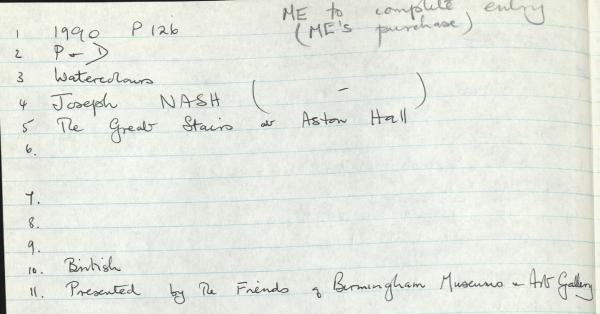 ME to complete entry
(ME's purchase)
1 1990 P 126
2 P & D
3 Watercolours
4 Joseph NASH ( - )
5 The Great Stairs at Aston Hall
6.
7.
8.
9.
10. British
11. Presented by the Friends of Birmingham Museums & Art Gallery